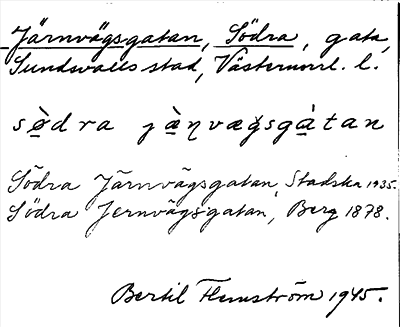 Järnvägsgatan, Södra, gata,
Sundsvalls stad, Västernorrl. l.
sö̀dra jæ̀ṇvægsgàtan
Södra Järnvägsgatan, Stadska 1935.
Södra Jernvägsgatan, Berg 1878.
Bertil Flemström 1945.